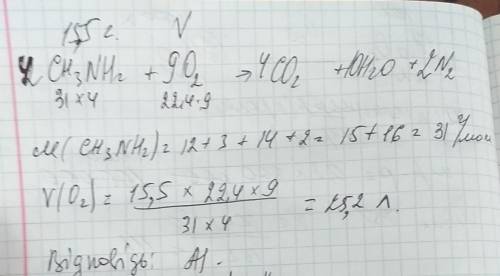 15,5 г. V
4CH₃NH₂ + 9O₂ → 4CO₂ + 10H₂O + 2N₂
31×4 22,4·9
M(CH₃NH₂) = 12 + 3 + 14 + 2 = 15 + 16 = 31 г/моль
V(O₂) = 15,5 × 22,4 × 9 / 31 × 4 = 25,2 л.
Відповідь: А).